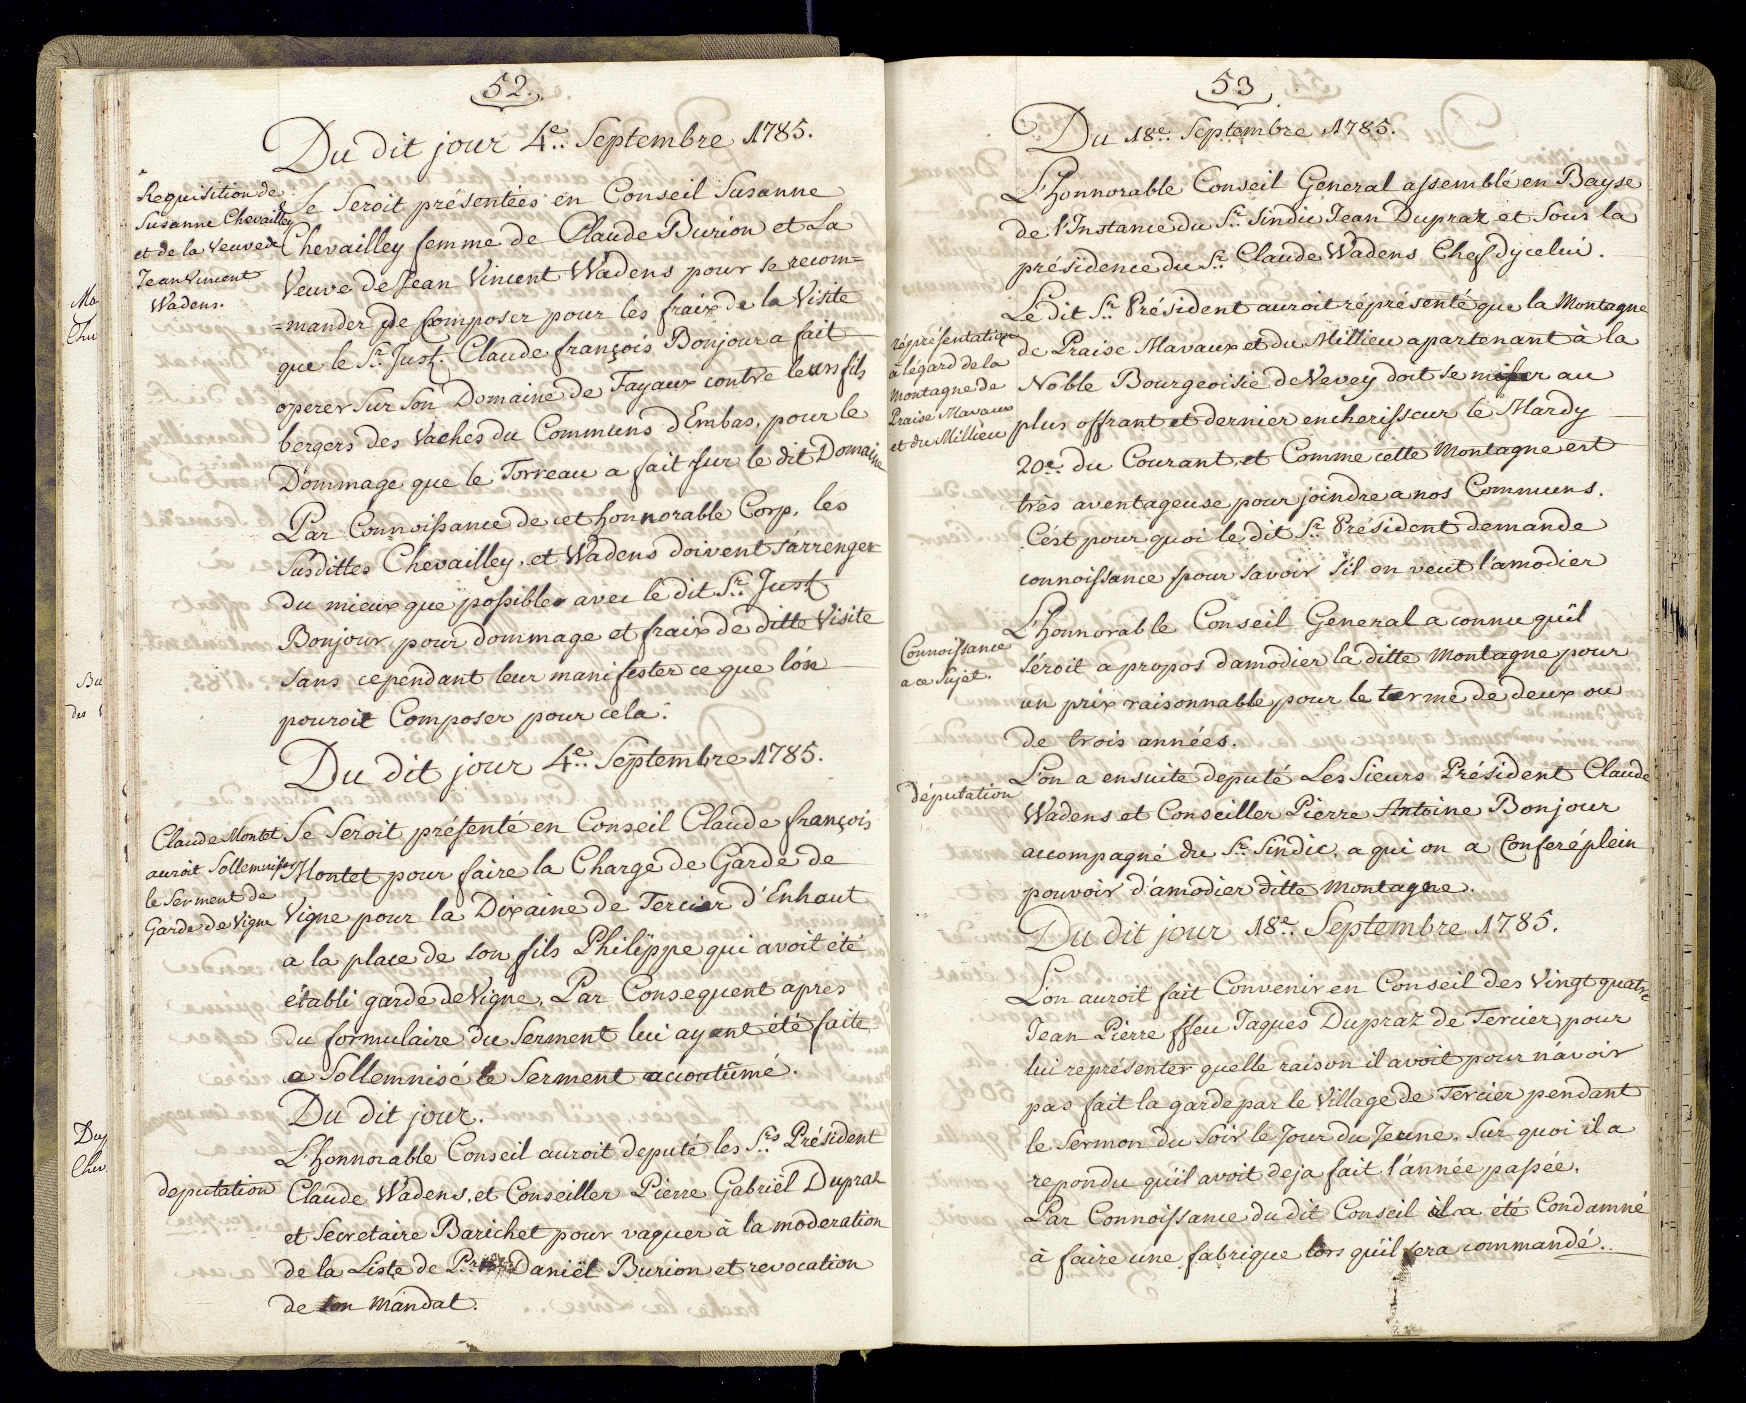 52.
Du dit jour 4e. Septembre 1785.
Requisition de
Susanne Chevailley
et de la Veuve de
Jean Vincent
Wadens.
Se Seroit présentées en Conseil Susanne
Chevailley femme de Claude Burion et La
Veuve de Jean Vincent Wadens pour se recom=
=mander de Composer pour les fraix de la Visite
que le Sr. Just. Claude françois Bonjour a fait
operer Sur Son Domaine de Fayaux contre leurs fils
bergers des Vaches du Communs d'Embas, pour le
Dommage que le Torreau a fait sur le dit Domaine
Par Connoissance de cet honnorable Corp, les
Susdittes Chevailley, et Wadens doivent s'arrenger
du mieux que possible avec le dit Sr. Just
Bonjour pour dommage et fraix de ditte Visite
Sans cependant leur manifester ce que l'on
pouroit Composer pour cela.
Du dit jour 4e. Septembre 1785.
Claude Montet
auroit Sollemnisér
le Serment de
Garde de Vigne
Se Seroit présenté en Conseil Claude françois
Montet pour faire la Charge de Garde de
Vigne pour la Dixaine de Tercier d'Enhaut
a la place de son fils Philippe qui avoit été
établi garde de Vigne, Par Consequent apres
du formulaire du Serment lui ayant été faite
a Sollemnisé le Serment accoutûmé.
Du dit jour.
deputation
L'honnorable Conseil auroit deputé les Srs Président
Claude Wadens, et Conseiller Pierre Gabriël Dupraz
et Secretaire Barichet pour vaquer à la moderation
de la Liste de Daniël Burion et revocation
de son mandat.
53
Du 18e. Septembre 1785.
L'honnorable Conseil General assemblé en Bayse
de l'Instance du Sr. Sindic Jean Dupraz et Sous la
présidence du Sr. Claude Wadens Chef d'ycelui.
répresentation
a légard de la
Montagne de
Praise Mavaux
et du Millieu
Le dit Sr. Président auroit répresenté que la Montagne
de Praise Mavaux et du Millieu apartenant à la
Noble Bourgeoisie de Vevey doit se miser au
plus offrant et dernier encherisseur le Mardy
20e. du Courant, et Comme cette Montagne est
très aventageuse pour joindre a nos Communs.
C'ést pour quoi le dit Sr. Président demande
connoissance pour savoir s'il on veut l'amodier
Connoissance
a ce Sujet.
L'honnorable Conseil General a connu qu'il
Séroit a propos d'amodier la ditte Montagne pour
un prix raisonnable pour le terme de deux ou
de trois années.
députation
L'on a ensuite deputé Les Sieurs Président Claude
Wadens et Conseiller Pierre Antoine Bonjour
accompagné du Sr. Sindic, a qui on a Conferé plein
pouvoir d'amodier ditte Montagne.
Du dit jour 18e. Septembre 1785.
L'on auroit fait Convenir en Conseil des Vingt quatre
Jean Pierre ffeu Jaques Dupraz de Tercier pour
lui représenter quelle raison il avoit pour n'avoir
pas fait la garde par le Village de Tercier pendant
le Sermon du Soir le Jour du Jeune, Sur quoi il a
repondu qu'il avoit deja fait l'année passée.
Par Connoissance du dit Conseil il a été Condamné
à faire une fabrique lors qu'il sera commandé.